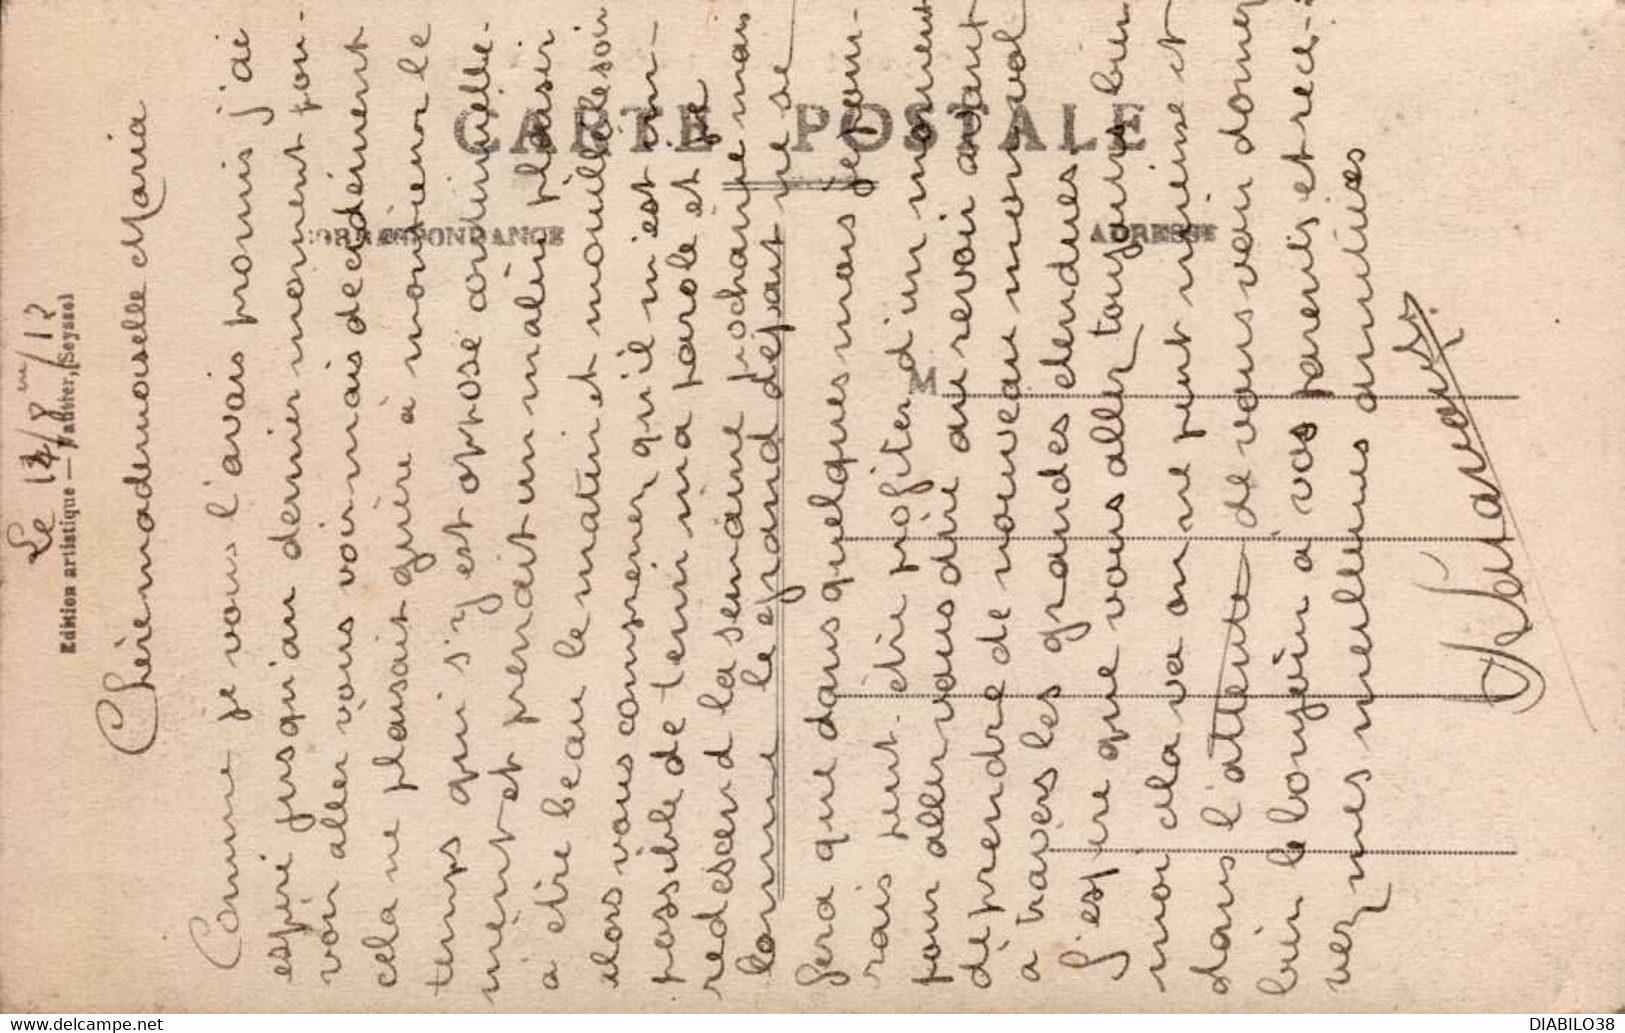 Le 14/8 em/12
Chère mademoiselle Maria
Comme je vous l'avais promis j'ai
espéré jusqu'au dernier moment pou-
voir aller vous voir mais decedément
cela ne plaisait guère à monsieur le
temps qui s'y est opposé continuelle-
ment et prenait un malin plaisir
à etre beau le matin et mouillé le soir
alors vous comprenez qu'il m'est im-
possible de tenir ma parole et je
redescend la semaine prochaine mais
comme le grand départ ne se
fera que dans quelques mois je pour-
rais peut-etre profiter d'un moment
pour aller vous dire au revoir avant
de prendre de nouveau mon vol
a travers les grandes etendues.
J'espere que vous aller toujours bien
moi cela va on ne peut mieux et
dans l'attente de vous voir donnez
bien le bonjour a vos parents et rece-
vez mes meilleures amitiées
CARTE POSTALE
CORRESPONDANCE
ADRESSE
M
Edition artistique — Fabvier, (Seyssel)